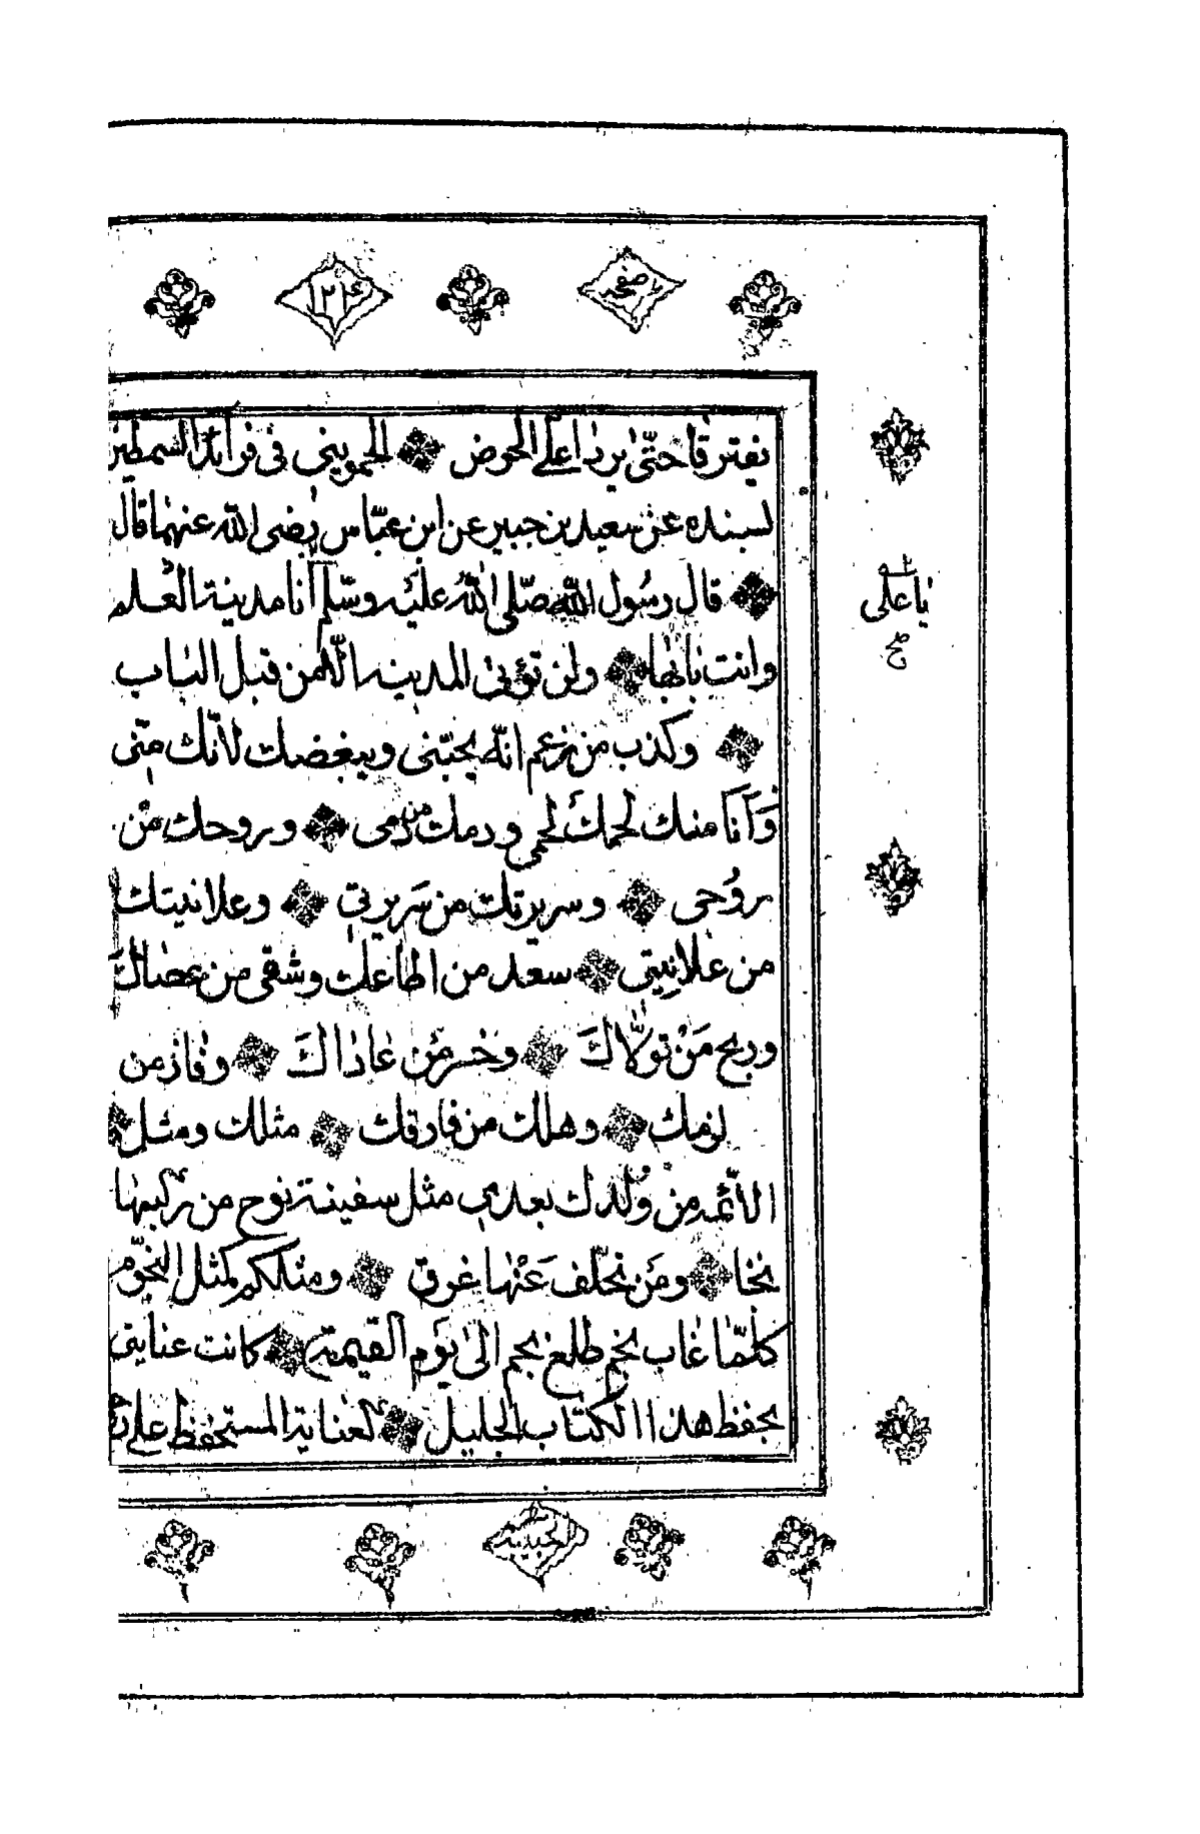 صفحه
١٢٤
يفترقا حتّى يردا علَى الحوض الحمويني في فرائد السمطين
بسنده عن سعيد بن جبير عن ابن عبّاس رضى الله عنهما قال
قال رسُول الله صلّى اللهُ عليه وسلّم أنا مدينة العلم
وانت بابها ولن تؤتى المدينه الّا من قبل الباب
وكذب من زعم انّه يحبّنى ويبغضك لأنّك منّى
وَأَنَا منك لحمك لحمى ودمك من دمى وروحك من
روُحى وسريرتك من سَريرتي وعلانيتك
من علانِيتى سعد من اطاعك وشقى من عصاك
وربح مَنْ تولّاكَ وخسر مَن عاداكَ وفاز من
لزمك وهلك من فارقك مثلك ومثل
الأئمه من وُلدك بعدي مثل سفينة نوح من ركبها
نجا ومَن تخلف عَنْها غرق ومثلكم كمثل النجوم
كلّما غاب نجم طلع نجم الىٰ يوم القيمة كانت عنايتى
بحفظ هذا الكتاب الجليل كعناية المستحفظ على
يا على